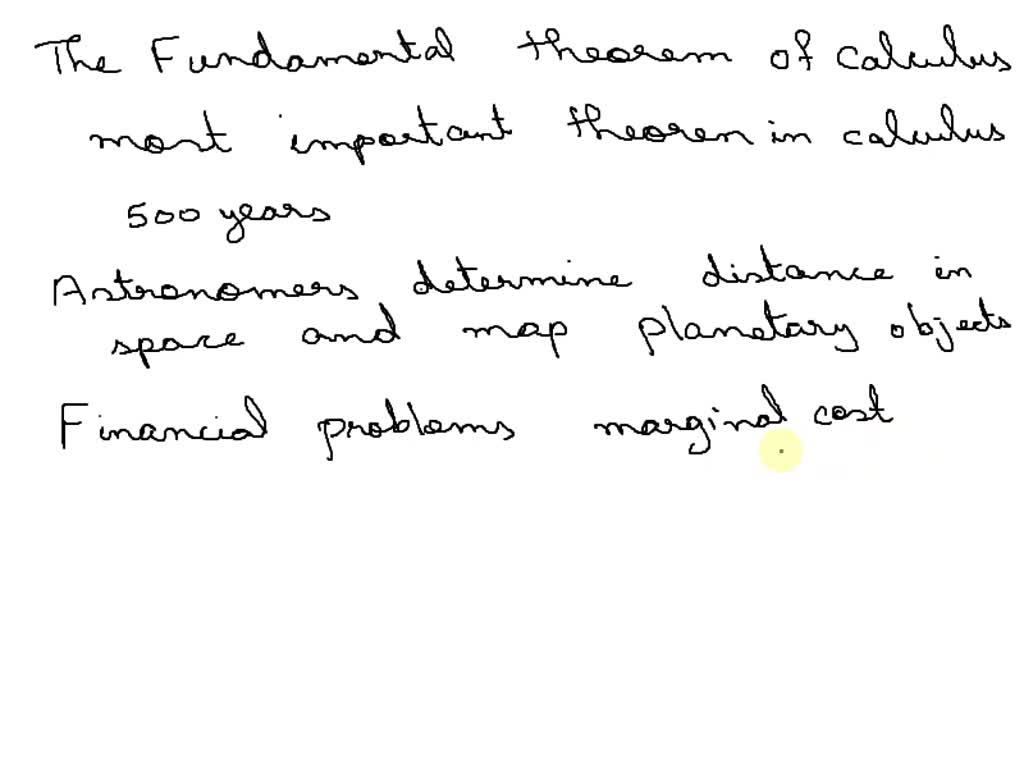 The Fundamental theorem of calculus
most important theoren in calculus
500 years
Astronomers determine distance in
space and map planetary objects
Financial problems marginal cost